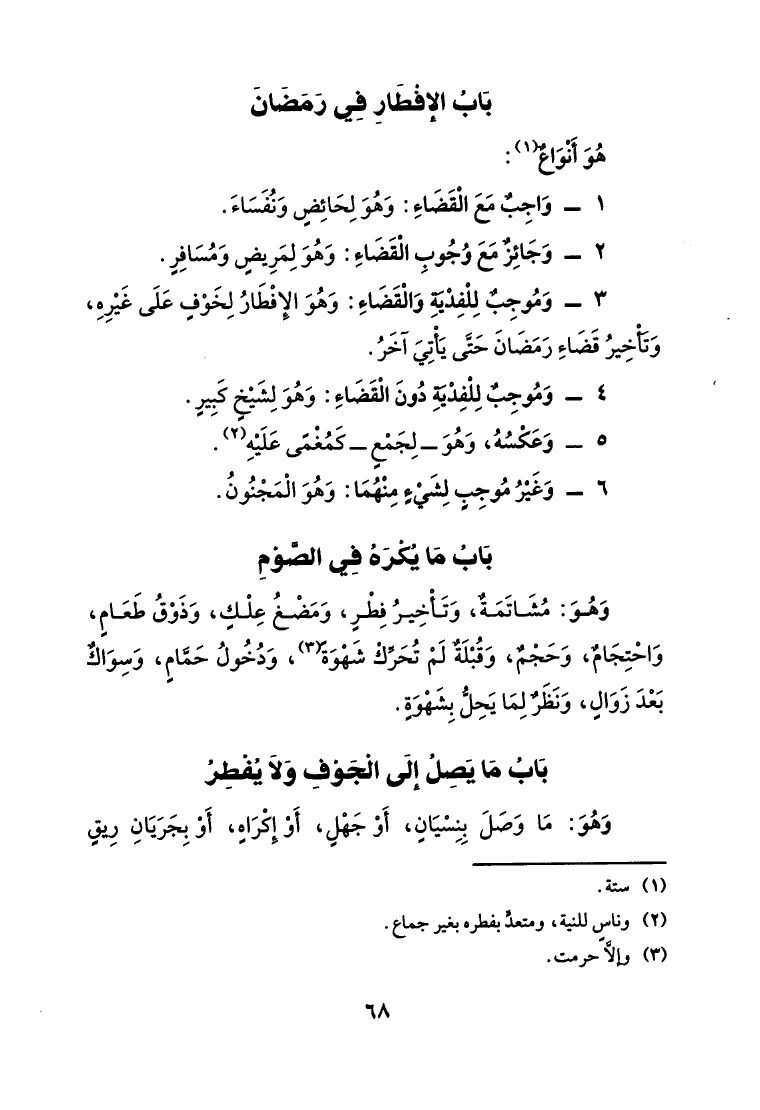 بَابُ الإِفْطَارِ فِي رَمَضَانَ
هُوَ أَنْوَاعٌ(١):
١ ـ وَاجِبٌ مَعَ الْقَضَاءِ: وَهُوَ لِحَائِضٍ وَنُفَسَاءَ.
٢ ـ وَجَائِزٌ مَعَ وُجُوبِ الْقَضَاءِ: وَهُوَ لِمَرِيضٍ وَمُسَافِرٍ.
٣ ـ وَمُوجِبٌ لِلْفِدْيَةِ وَالْقَضَاءِ: وَهُوَ الإِفْطَارُ لِخَوْفٍ عَلَى غَيْرِهِ،
وَتَأْخِيرُ قَضَاءِ رَمَضَانَ حَتَّى يَأْتِيَ آخَرُ.
٤ ـ وَمُوجِبٌ لِلْفِدْيَةِ دُونَ الْقَضَاءِ: وَهُوَ لِشَيْخٍ كَبِيرٍ.
٥ ـ وَعَكْسُهُ، وَهُوَ ـ لِجَمْعٍ ـ كَمُغْمًى عَلَيْهِ(٢).
٦ ـ وَغَيْرُ مُوجِبٍ لِشَيْءٍ مِنْهُمَا: وَهُوَ الْمَجْنُونُ.
بَابُ مَا يُكْرَهُ فِي الصَّوْمِ
وَهُوَ: مُشَاتَمَةٌ، وَتَأْخِيرُ فِطْرٍ، وَمَضْغُ عِلْكٍ، وَذَوْقُ طَعَامٍ،
وَاحْتِجَامٌ، وَحَجْمٌ، وَقُبْلَةٌ لَمْ تُحَرِّكْ شَهْوَةً(٣)، وَدُخُولُ حَمَّامٍ، وَسِوَاكٌ
بَعْدَ زَوَالٍ، وَنَظَرٌ لِمَا يَحِلُّ بِشَهْوَةٍ.
بَابُ مَا يَصِلُ إِلَى الْجَوْفِ وَلاَ يُفْطِرُ
وَهُوَ: مَا وَصَلَ بِنِسْيَانٍ، أَوْ جَهْلٍ، أَوْ إِكْرَاهٍ، أَوْ بِجَرَيَانِ رِيقٍ
(١) ستة.
(٢) وناسٍ للنية، ومتعدٍّ بفطره بغير جماع.
(٣) وإلاَّ حرمت.
٦٨